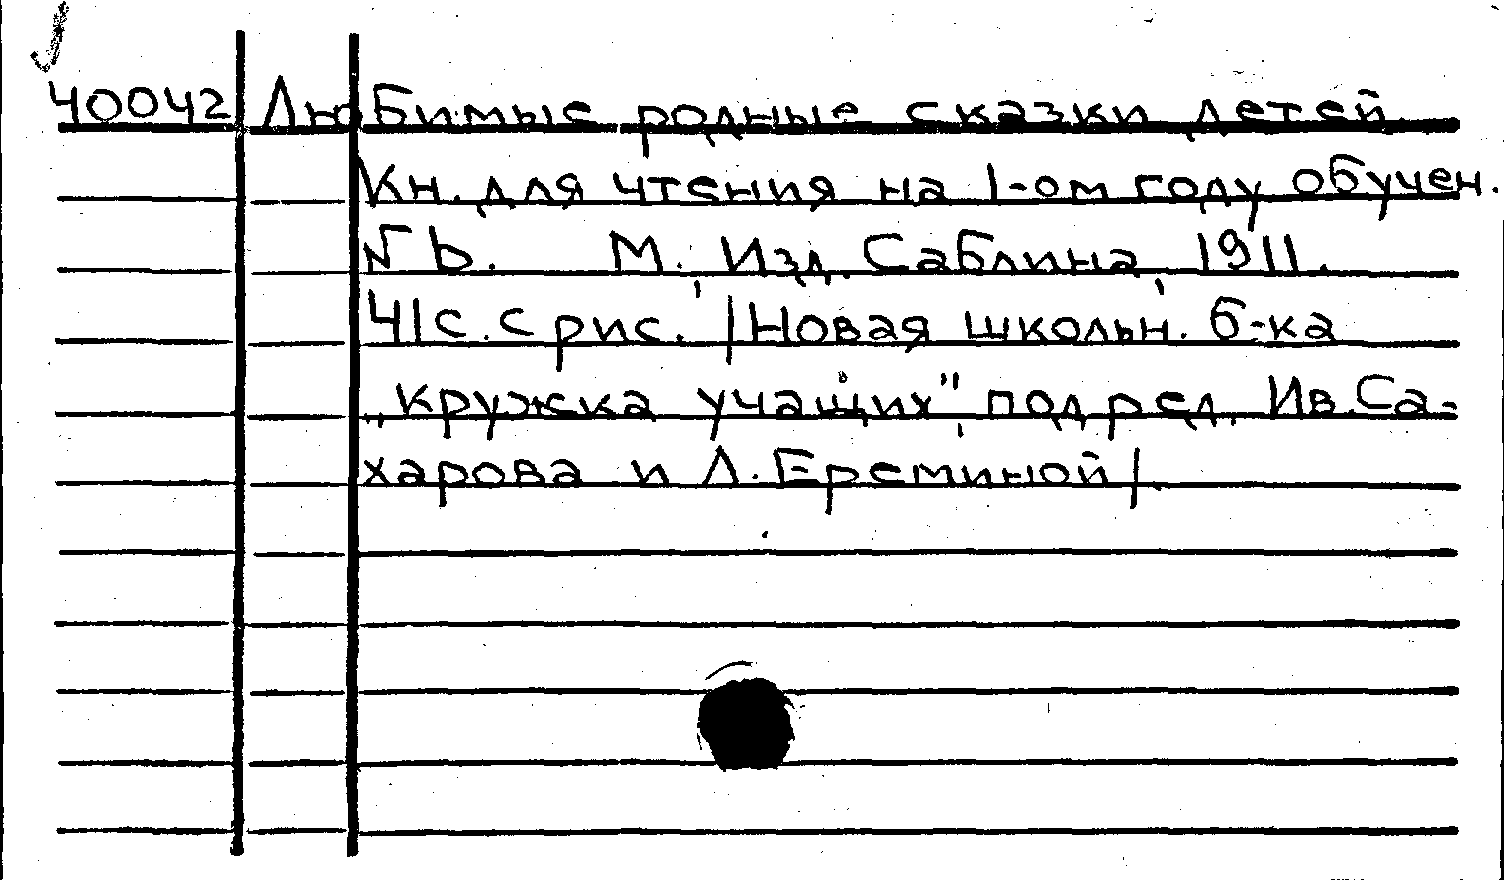 40042 Любимые родные сказки детей.
Кн. для чтения на 1-ом году обучен.
М. Изд. Саблина, 1911.
41с. с рис. /Новая школьн. б-ка
„кружка учащих" под ред. Ив. Са-
харова и Л. Ереминой/.